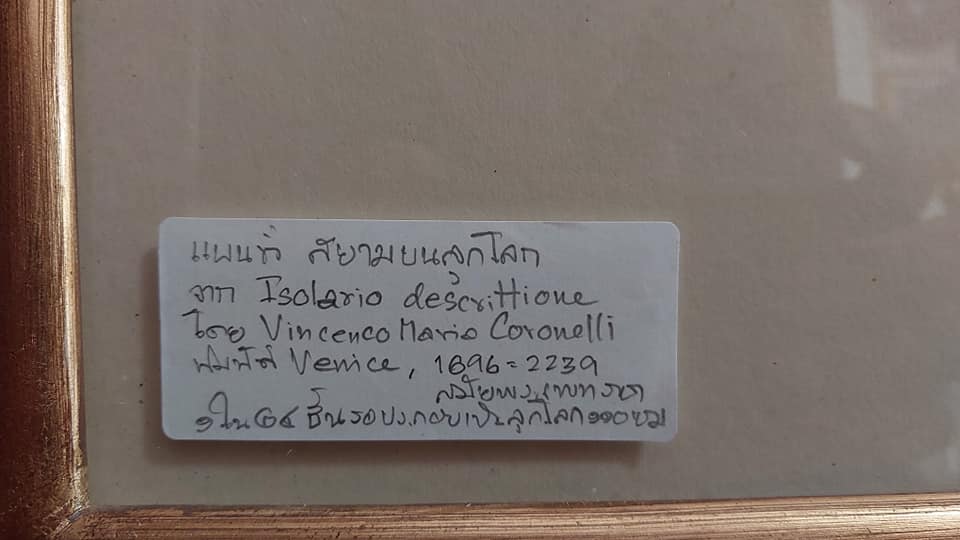 แผนที่ สยามบนลูกโลก
จาก Isolario descrittione
โดย Vincenco Maria Coronelli
พิมพ์ที่ Venice, 1696 = 2239
สมัยพระเพทราชา
๑ ใน ๒๔ ชิ้น ประกอบเป็นลูกโลก ๑๑๐ ซม